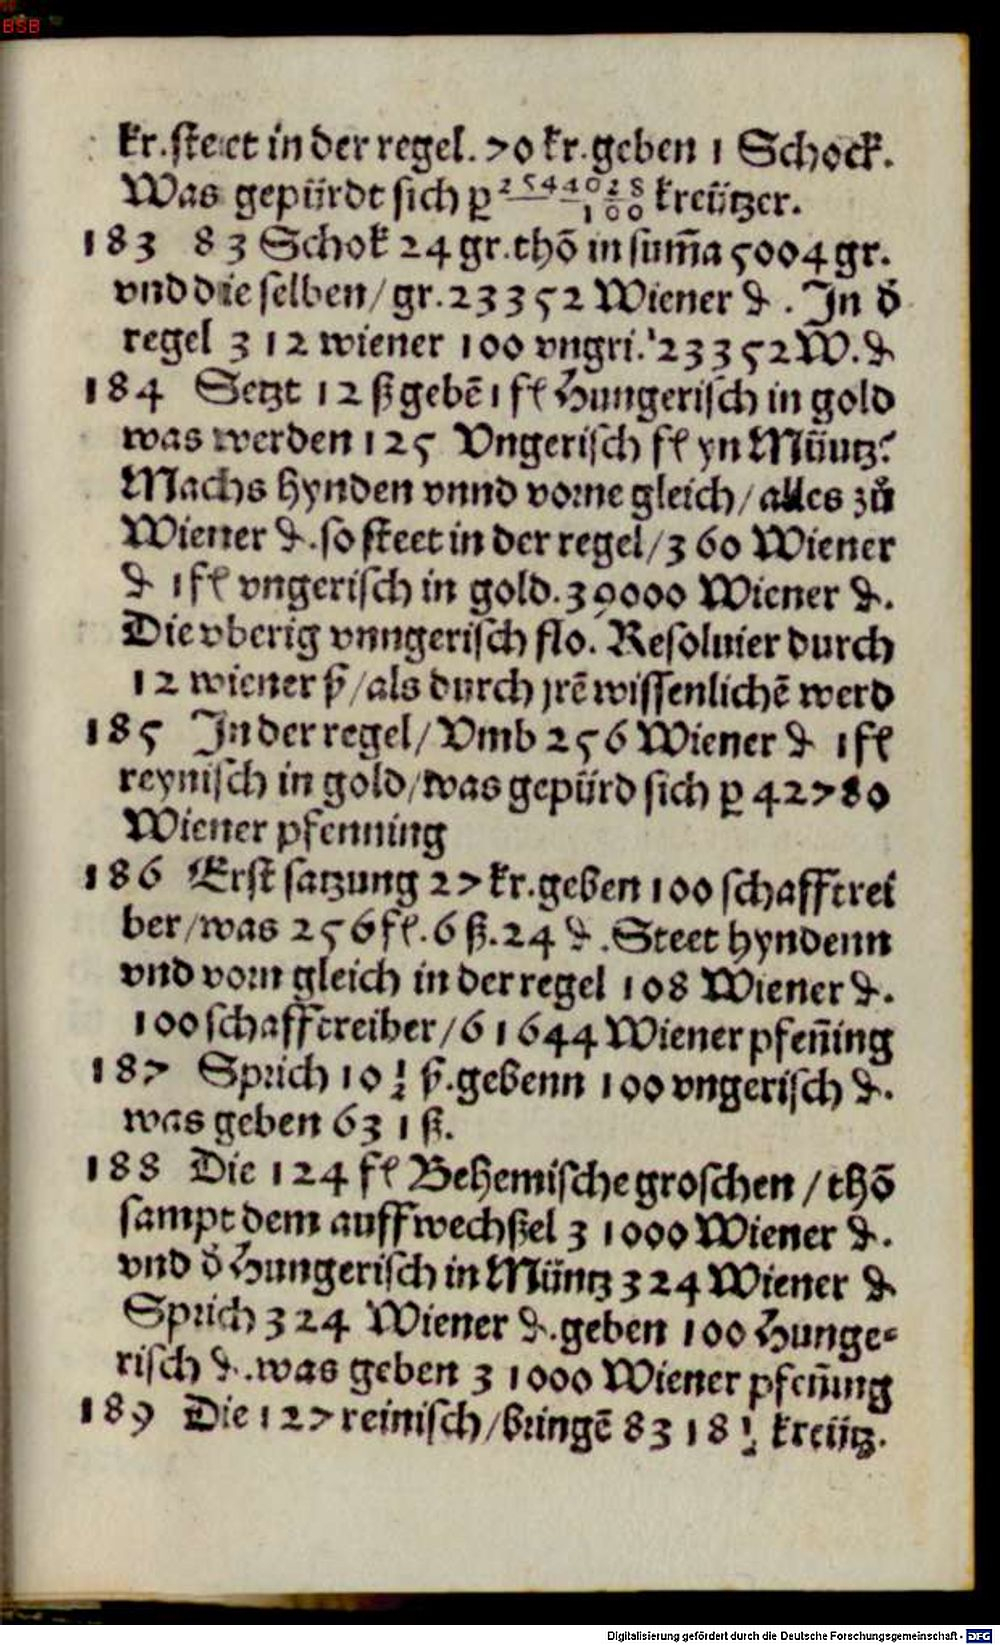 BSB
kr. steet in der regel. 70 kr. geben 1 Schock.
Was gepürdt sich p 2544028/100 kreützer.
183 83 Schok 24 gr. thō in sum̄a 5004 gr.
vnd die selben / gr. 23352 Wiener ₰. In d̄
regel 312 wiener 100 vngri. 23352 W. ₰
184 Setzt 12 ß gebē 1 fl Hungerisch in gold
was werden 125 Vngerisch fl yn Müntz?
Machs hynden vnnd vorne gleich / alles zů
Wiener ₰. so steet in der regel / 360 Wiener
₰ 1 fl vngerisch in gold. 39000 Wiener ₰.
Die vberig vnngerisch flo. Resoluier durch
12 wiener ß / als durch jrē wissenlichē werd
185 In der regel / Vmb 256 Wiener ₰ 1 fl
reynisch in gold / was gepürd sich p 42780
Wiener pfenning
186 Erst satzung 27 kr. geben 100 schafftrei
ber / was 256 fl. 6 ß. 24 ₰. Steet hyndenn
vnd vorn gleich in der regel 108 Wiener ₰.
100 schafftreiber / 61644 Wiener pfen̄ing
187 Sprich 10 1/2 ß. gebenn 100 vngerisch ₰.
was geben 631 ß.
188 Die 124 fl Behemische groschen / thō
sampt dem auffwechßel 31000 Wiener ₰.
vnd d̄ Hungerisch in Müntz 324 Wiener ₰
Sprich 324 Wiener ₰. geben 100 Hunge=
risch ₰. was geben 31000 Wiener pfen̄ing
189 Die 127 reinisch / bringē 8318 1/2 kreütz.
Digitalisierung gefördert durch die Deutsche Forschungsgemeinschaft - DFG